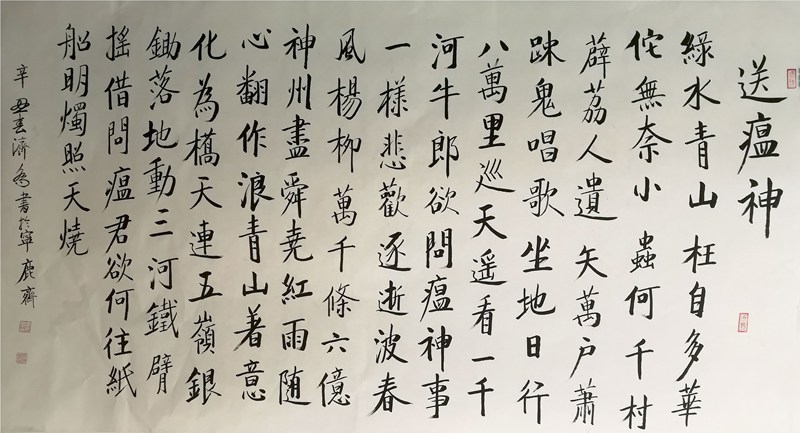 送瘟神
綠水青山枉自多華
佗無奈小蟲何千村
薜荔人遺矢萬户蕭
踈鬼唱歌坐地日行
八萬里巡天遥看一千
河牛郎欲問瘟神事
一樣悲歡逐逝波春
風楊柳萬千條六億
神州盡舜堯紅雨随
心翻作浪青山着意
化為橋天連五嶺銀
鋤落地動三河鐵臂
摇借問瘟君欲何往紙
船明燭照天燒
辛丑春濟書於寧鹿齋